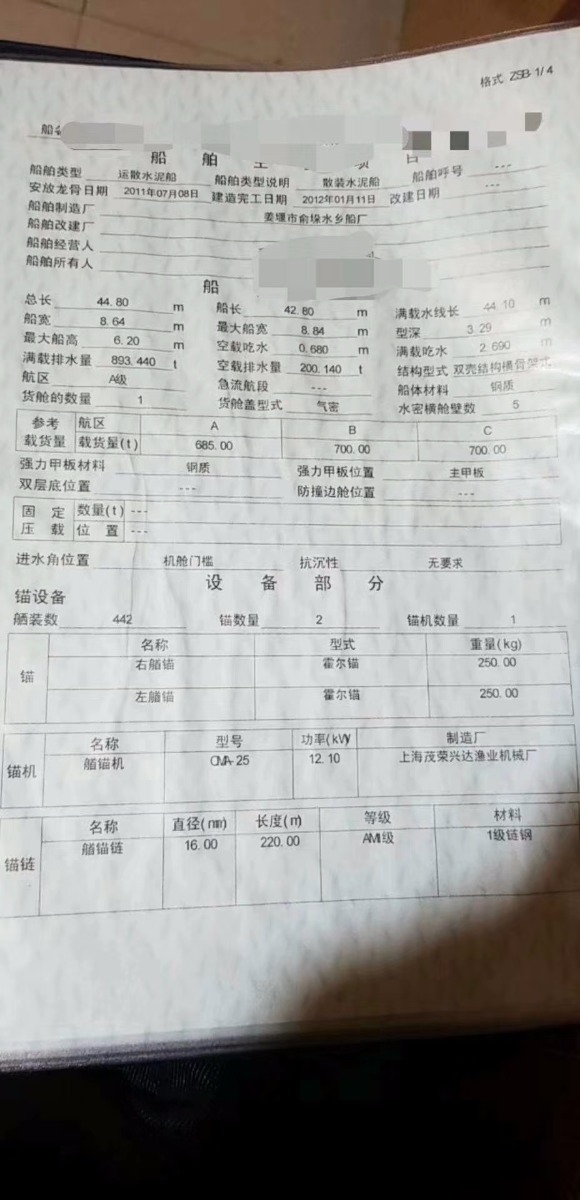 格式 ZSB-1/4
船
船舶主 项目
船舶类型 运散水泥船 船舶类型说明 散装水泥船 船舶呼号 ---
安放龙骨日期 2011年07月08日 建造完工日期 2012年01月11日 改建日期 ---
船舶制造厂 姜堰市俞垛水乡船厂
船舶改建厂
船舶经营人
船舶所有人
船
总长 44.80 m 船长 42.80 m 满载水线长 44.10 m
船宽 8.64 m 最大船宽 8.84 m 型深 3.29 m
最大船高 6.20 m 空载吃水 0.680 m 满载吃水 2.690 m
满载排水量 893.440 t 空载排水量 200.140 t 结构型式 双壳结构横骨架式
航区 A级 急流航段 --- 船体材料 钢质
货舱的数量 1 货舱盖型式 气密 水密横舱壁数 5
参考 航区 A B C
载货量 载货量(t) 685.00 700.00 700.00
强力甲板材料 钢质 强力甲板位置 主甲板
双层底位置 --- 防撞边舱位置 ---
固定 数量(t) ---
压载 位置 ---
进水角位置 机舱门槛 抗沉性 无要求
设备部分
锚设备
舾装数 442 锚数量 2 锚机数量 1
锚 名称 型式 重量(kg)
右艏锚 霍尔锚 250.00
左艏锚 霍尔锚 250.00
锚机 名称 型号 功率(kW) 制造厂
艏锚机 CMA-25 12.10 上海茂荣兴达渔业机械厂
锚链 名称 直径(mm) 长度(m) 等级 材料
艏锚链 16.00 220.00 AM1级 1级链钢